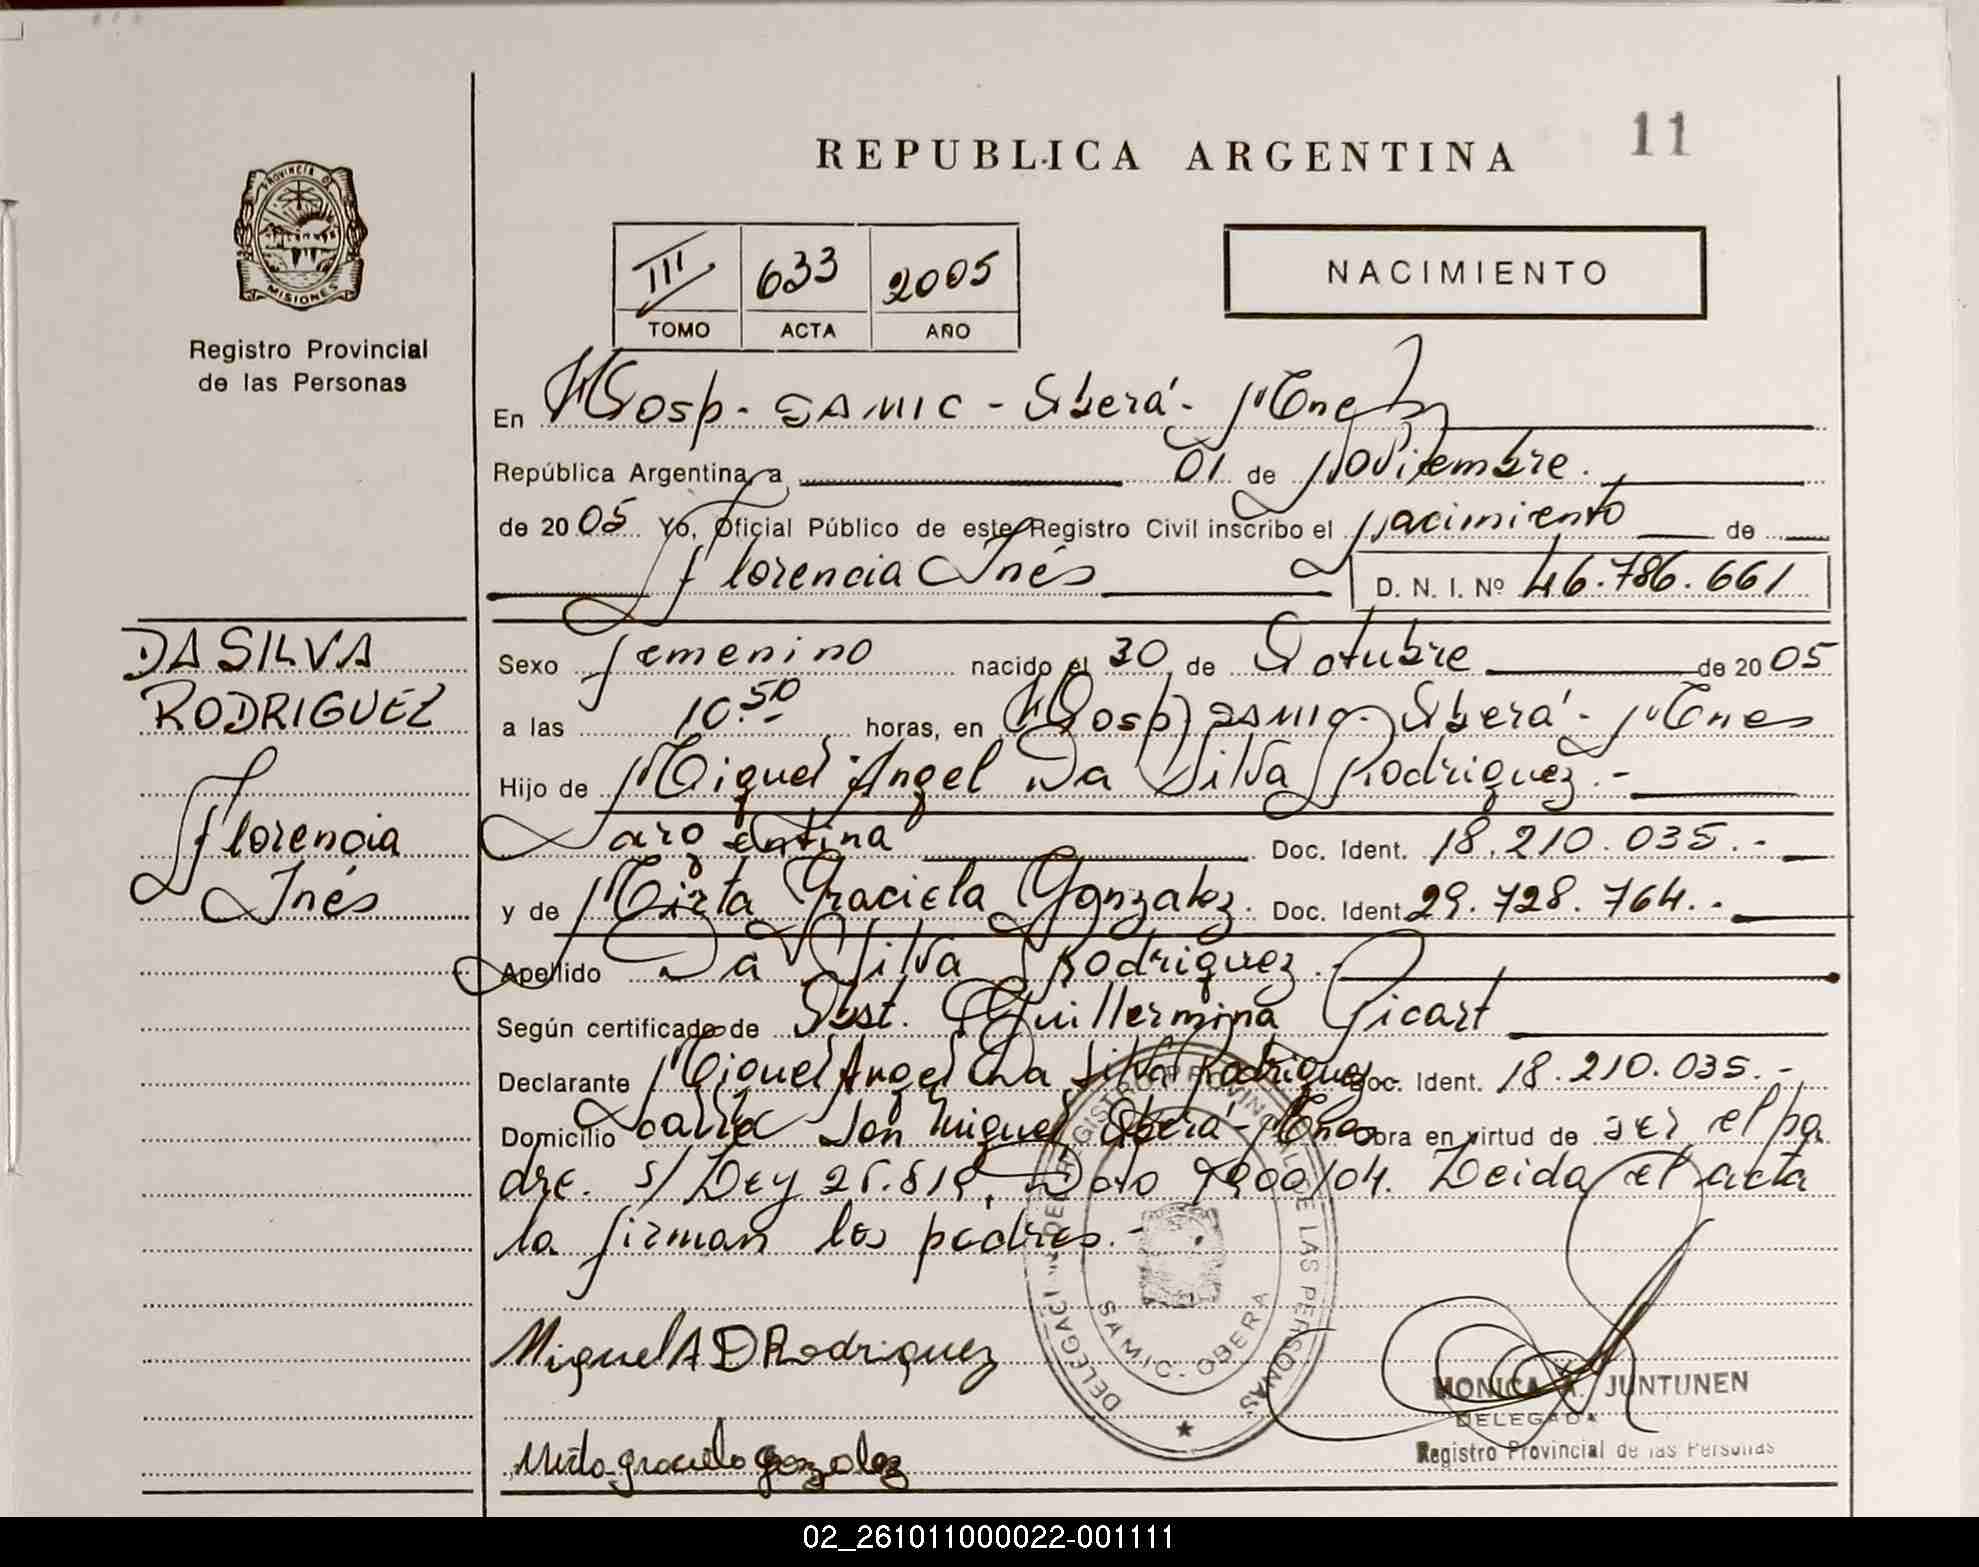 11
REPUBLICA ARGENTINA
PROVINCIA DE
MISIONES
Registro Provincial
de las Personas
III 633 2005
TOMO ACTA AÑO
NACIMIENTO
En Hosp. SAMIC - Oberá - Mnes
República Argentina, a 01 de Noviembre.
de 2005 Yo, Oficial Público de este Registro Civil inscribo el nacimiento de
Florencia Inés D. N. I. Nº 46.786.661
DA SILVA
RODRIGUEZ
Florencia
Inés
Sexo femenino nacido el 30 de Octubre de 2005
a las 10.50 horas, en Hosp SAMIC - Oberá - Mnes
Hijo de Miguel Angel Da Silva Rodriguez.-
argentina Doc. Ident. 18.210.035.-
y de Mirta Graciela Gonzalez. Doc. Ident. 29.728.764.-
Apellido Da Silva Rodriguez.
Según certificado de Obst. Guillermina Picart
Declarante Miguel Angel Da Silva Rodriguez Doc. Ident. 18.210.035.-
Domicilio San Miguel Oberá - Mnes obra en virtud de ser el pa
dre. s/ Ley 25.819, Dto 1900/04. Leida el acta
la firman los padres.-
DELEGACION DEL REGISTRO PROVINCIAL DE LAS PERSONAS
SAMIC. OBERA
Miguel A D Rodriguez
Mirta graciela gonzalez
MONICA A. JUNTUNEN
DELEGADA
Registro Provincial de las Personas
02_261011000022-001111